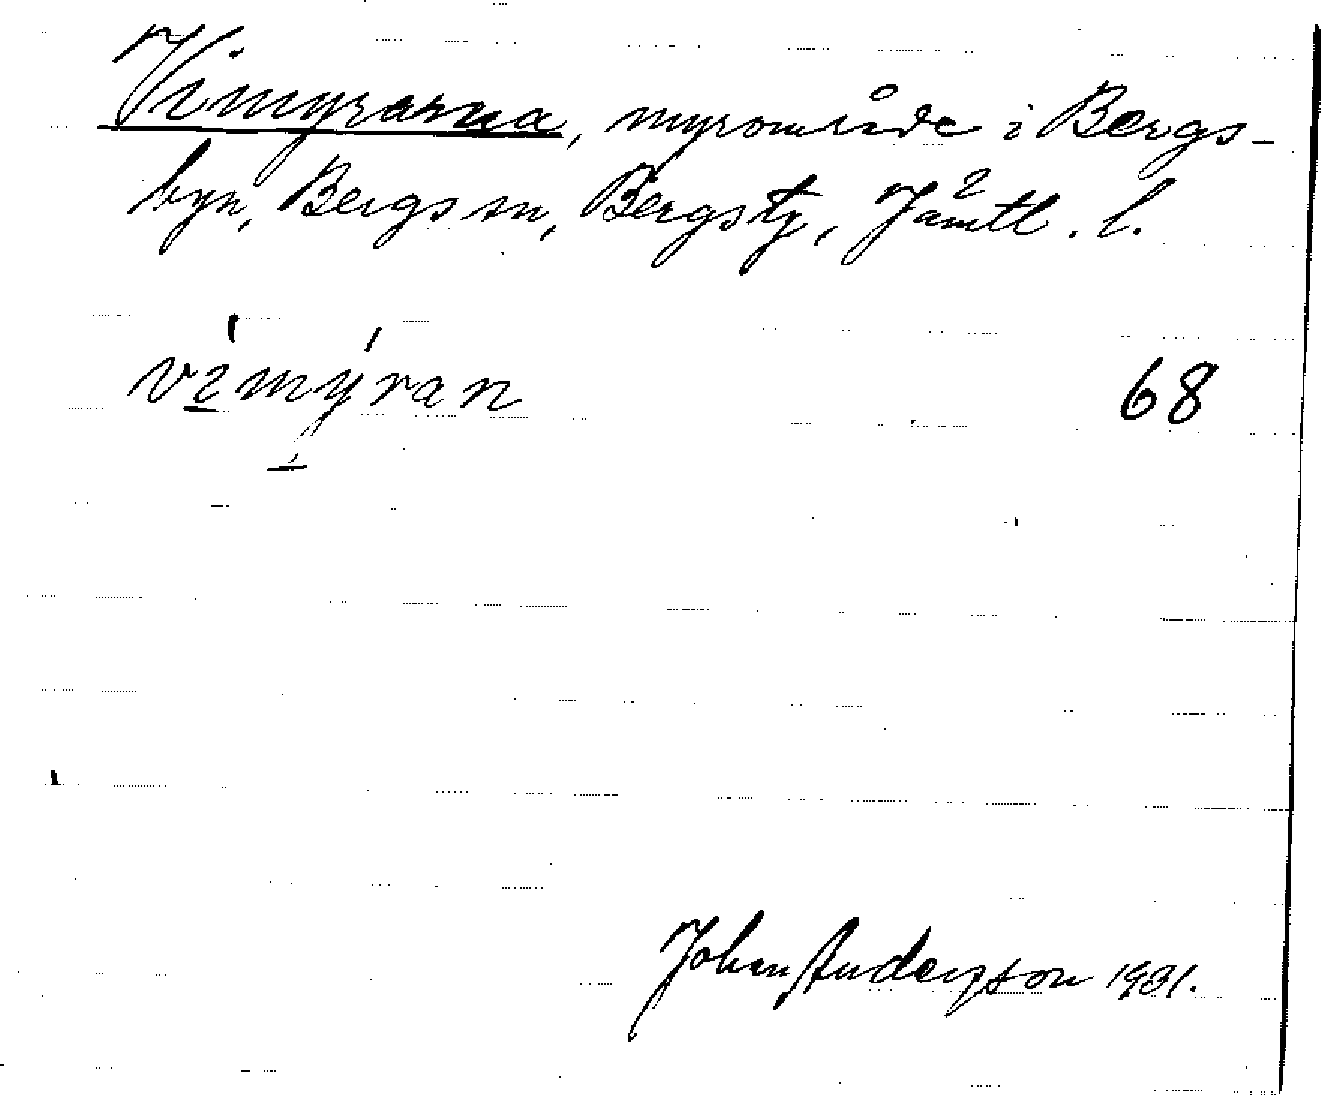 Vimyrarna, myrområde i Bergs-
byn, Bergs sn, Bergs tg, Jämtl. l.
vimýran 68
Johan Anderzson 1931.